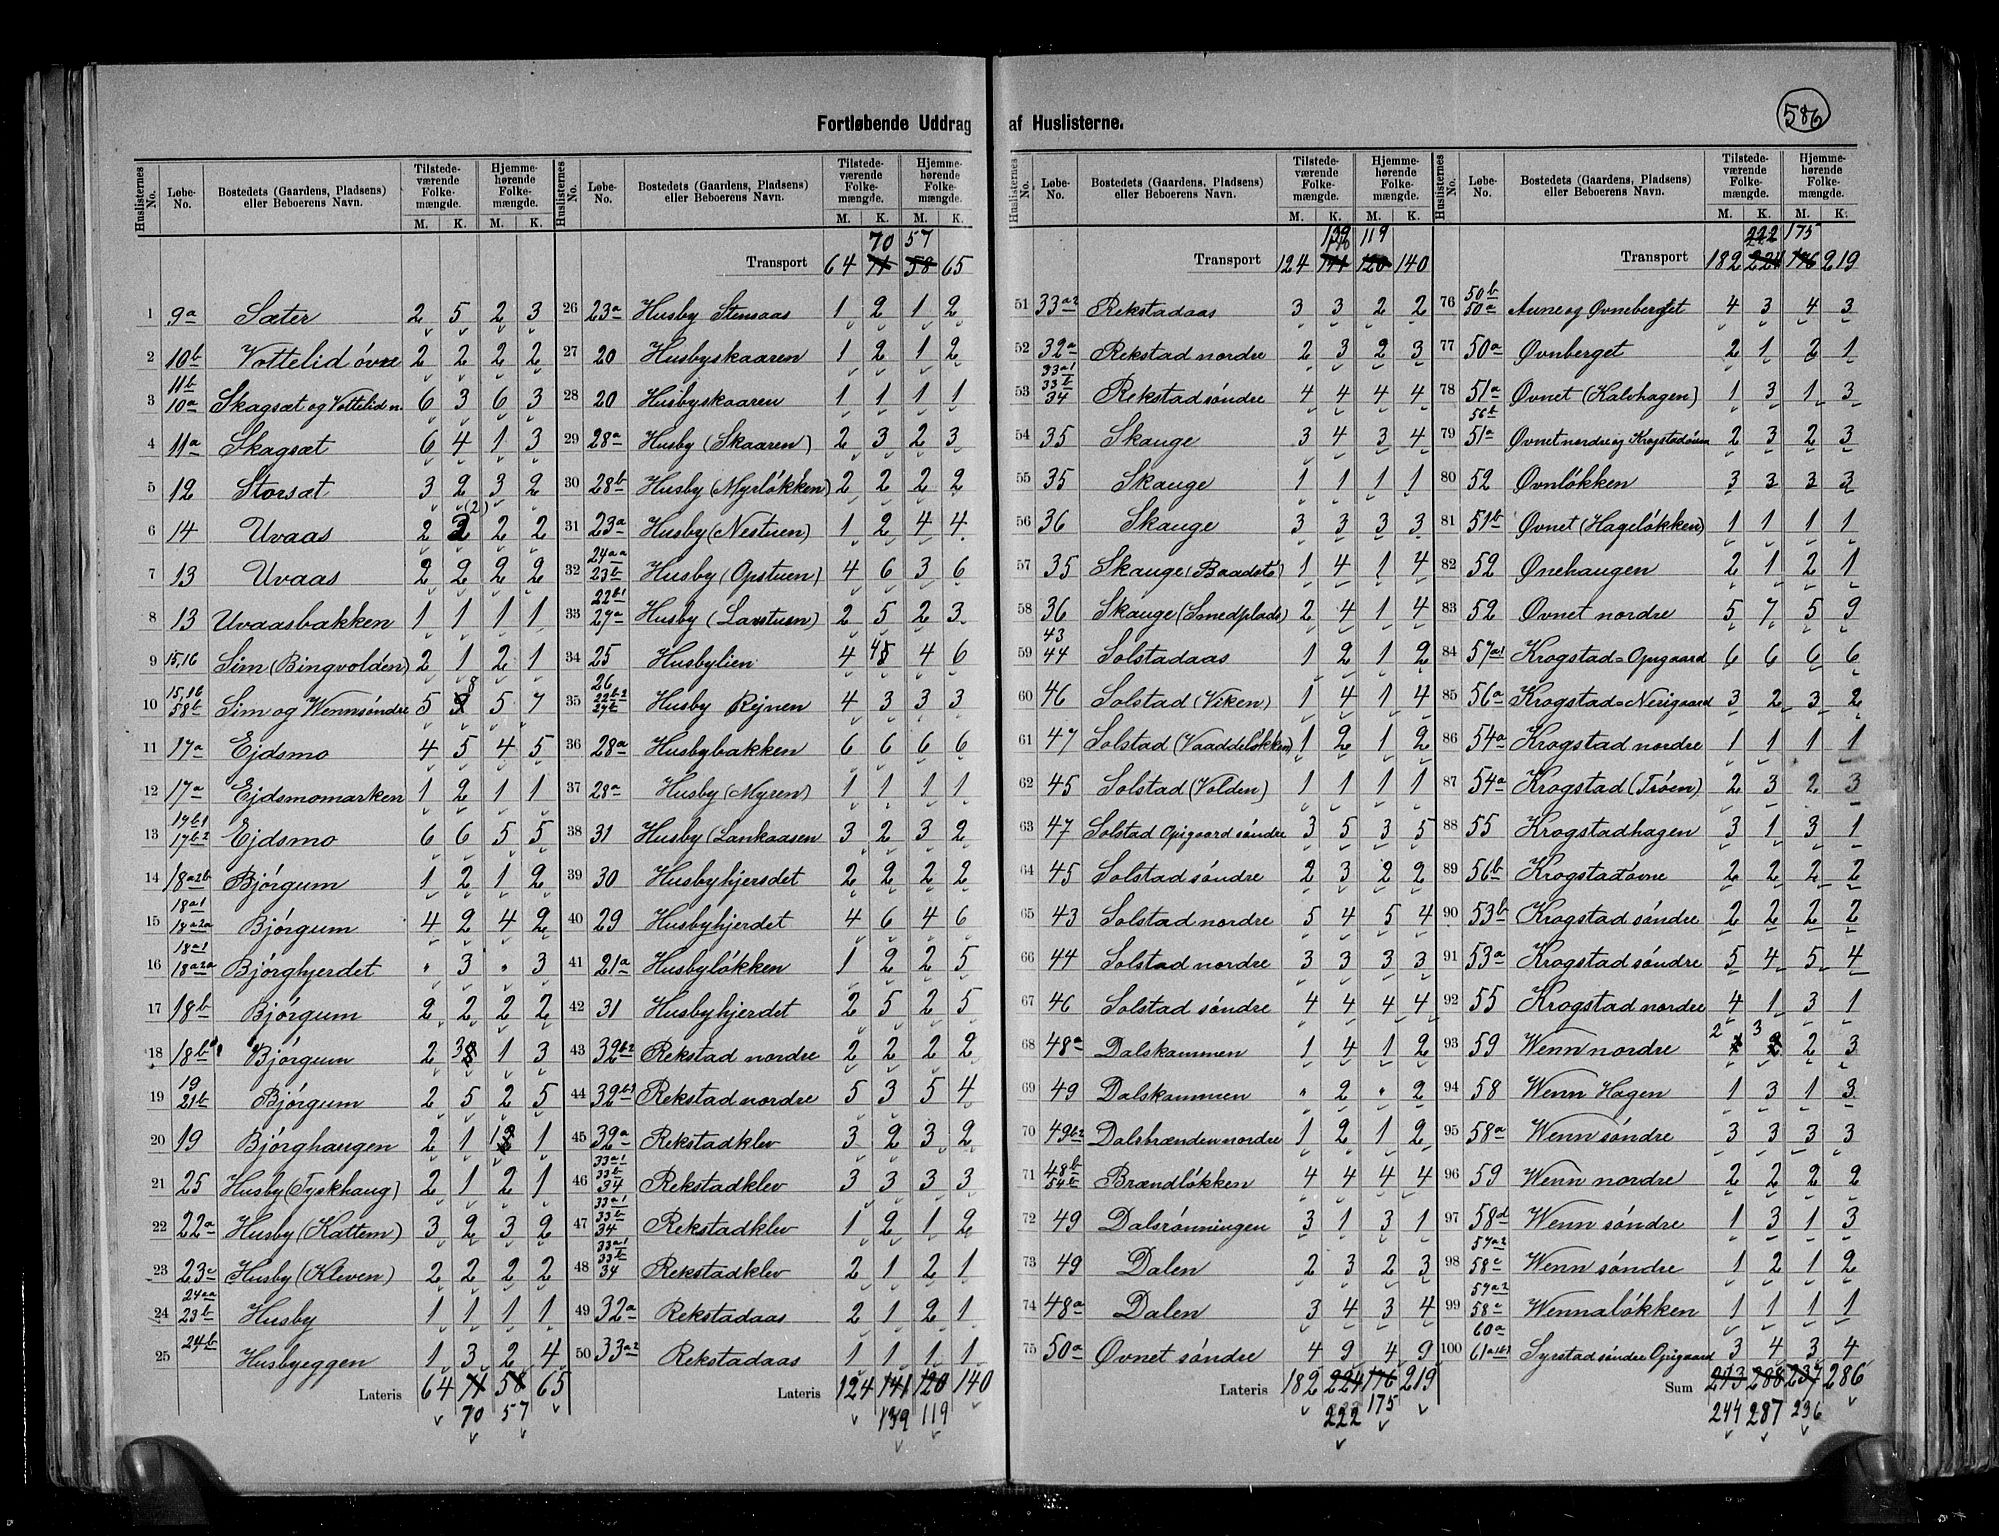 586
Fortløbende Uddrag af Huslisterne.
Huslisternes No. Løbe-No. Bostedets (Gaardens, Pladsens) eller Beboerens Navn. Tilstedeværende Folkemængde. Hjemmehørende Folkemængde.
M. K. M. K.
70 57
Transport 64 71 58 65
1 9a Sæter 2 5 2 3
2 10b Vottelid övre 2 2 2 2
3 11b 10a Skagsæt og Vottelid n. 6 3 6 3
4 11a Skagsæt 6 4 1 3
5 12 Storsæt 3 2 3 2
6 14 Uvaas 2 3 (2) 2 2
7 13 Uvaas 2 2 2 2
8 13 Uvaasbakken 1 1 1 1
9 15,16 Sim (Bingvolden) 2 1 2 1
10 15,16 58b Sim og Wennsöndre 5 8 5 7
11 17a Ejdsmo 4 5 4 5
12 17a Ejdsmomarken 1 2 1 1
13 17b1 17b2 Ejdsmo 6 6 5 5
14 18a2b Bjórgum 1 2 1 2
15 18a1 18a2a Bjórgum 4 2 4 2
16 18a1 18a2a Bjórghjerdet " 3 " 3
17 18b Bjórgum 2 2 2 2
18 18b Bjórgum 2 3 1 3
19 19 21b Bjórgum 2 5 2 5
20 19 Bjórghaugen 2 1 1 1
21 25 Husby (Tyskhaug) 2 1 2 1
22 22a Husby (Kattem) 3 2 3 2
23 23c Husby (Kleven) 2 2 2 2
24 24aa 23b Husby 1 1 1 1
25 24b Husbyeggen 1 3 2 4
Lateris 64 71 58 65
70 57
26 23a Husby Stensaas 1 2 1 2
27 20 Husbyskaaren 1 2 1 2
28 20 Husbyskaaren 1 1 1 1
29 28a Husby (Skaaren) 2 3 2 3
30 28b Husby (Myrlökken) 2 2 2 2
31 23a Husby (Nestuen) 1 2 4 4
32 24aa 23b Husby (Opstuen) 4 6 3 6
33 22b1 27a Husby (Larstuen) 2 5 2 3
34 25 Husbylien 4 8 4 6
35 26 22b2 27b Husby Rejnen 4 3 3 3
36 28a Husbybakken 6 6 6 6
37 28a Husby (Myren) 1 1 1 1
38 31 Husby (Lankaasen 3 2 3 2
39 30 Husbyhjerdet 2 2 2 2
40 29 Husbyhjerdet 4 6 4 6
41 21a Husbylökken 1 2 2 5
42 31 Husbyhjerdet 2 5 2 5
43 32b2 Rekstad nordre 2 2 2 2
44 32b1 Rekstad nordre 5 3 5 4
45 32a Rekstadklev 3 2 3 2
46 33a1 33b 34 Rekstadklev 3 3 3 3
47 33a1 33b 34 Rekstadklev 1 2 1 2
48 33a1 33b 34 Rekstadklev 2 1 2 1
49 32a Rekstadaas 2 1 2 1
50 33a2 Rekstadaas 1 1 1 1
Lateris 124 141 120 140
139 119
139 119
Transport 124 141 120 140
51 33a2 Rekstadaas 3 3 2 2
52 32a Rekstad nordre 2 3 2 3
53 33a1 33b 34 Rekstad söndre 4 4 4 4
54 35 Skauge 3 4 3 4
55 35 Skauge 1 1 1 1
56 36 Skauge 3 3 3 3
57 35 Skauge (Baadstö) 1 4 1 4
58 36 Skauge (Smedplads) 2 4 1 4
59 43 44 Solstadaas 1 2 1 2
60 46 Solstad (Viken) 1 4 1 4
61 47 Solstad (Vaaddelökken) 1 2 1 2
62 45 Solstad (Volden) 1 1 1 1
63 47 Solstad Opigaard söndre 3 5 3 5
64 45 Solstad söndre 2 3 2 2
65 43 Solstad nordre 5 4 5 4
66 44 Solstad nordre 3 3 3 3
67 46 Solstad söndre 4 4 4 4
68 48a Dalskammen 1 4 1 2
69 49 Dalskammen " 2 " 2
70 49b2 Dalsbrænden nordre 1 2 1 2
71 48b 54b Brændlökken 4 4 4 4
72 49 Dalsrönningen 3 1 3 1
73 49 Dalen 2 3 2 3
74 48a Dalen 3 4 3 4
75 50a Övnet söndre 4 9 4 9
Lateris 182 224 176 219
222 175
222 175
Transport 182 224 176 219
76 50b 50a Aune og Övneberget 4 3 4 3
77 50a Övnberget 2 1 2 1
78 51a Övnet (Kalvhagen) 1 3 1 3
79 56b 51a Övnet nordre og Krogstadövne 2 3 2 3
80 52 Övnlökken 3 3 3 3
81 51b Övnet (Hagelökken) 1 1 1 1
82 52 Önehaugen 2 1 2 1
83 52 Övnet nordre 5 7 5 9
84 57a1 Krogstad=Opigaard 6 6 6 6
85 56a Krogstad=Nerigaard 3 2 3 2
86 54a Krogstad nordre 1 1 1 1
87 54a Krogstad (Tröen) 2 3 2 3
88 55 Krogstadhagen 3 1 3 1
89 56b Krogstadövne 2 2 2 2
90 53b Krogstad söndre 2 2 2 2
91 53a Krogstad söndre 5 4 5 4
92 55 Krogstad nordre 4 1 3 1
93 59 Wenn nordre 2 3 2 3
94 58 Wenn Hagen 1 3 1 3
95 58a Wenn söndre 3 3 3 3
96 59 Wenn nordre 2 2 2 2
97 58d Wenn söndre 1 3 1 3
98 57a2 58c Wenn söndre 1 2 1 2
99 57a2 58c Wennalökken 1 1 1 1
100 60a 61a1b1 Syrstad söndre Opigaard 3 4 3 4
Sum 243 288 237 286
244 287 236